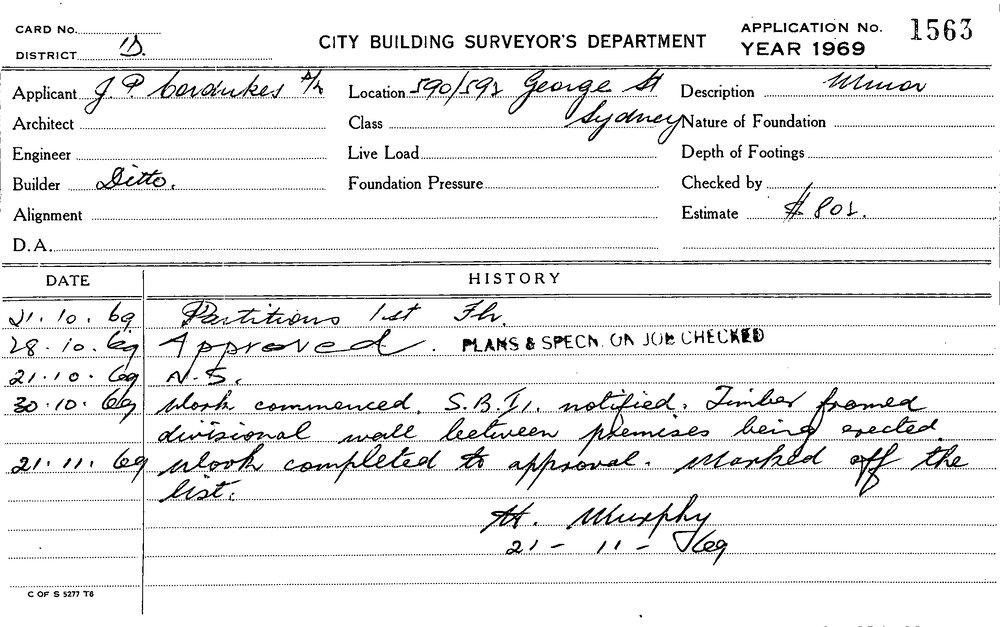 CARD No.
DISTRICT D.
CITY BUILDING SURVEYOR'S DEPARTMENT
APPLICATION No. 1563
YEAR 1969
Applicant J P Cordukes P/L Location 590/592 George St Description Minor
Architect Class Sydney Nature of Foundation
Engineer Live Load Depth of Footings
Builder Ditto. Foundation Pressure Checked by
Alignment Estimate $ 801.
D.A.
DATE HISTORY
21.10.69 Partitions 1st Flr.
28.10.69 Approved. PLANS & SPECN. ON JOB CHECKED
21.10.69 N.S.
30.10.69 Work commenced. S.B.I. notified. Timber framed
divisional wall between premises being erected
21.11.69 Work completed to approval. Marked off the
list.
H. Murphy
21-11-69
C OF S 5277 T6